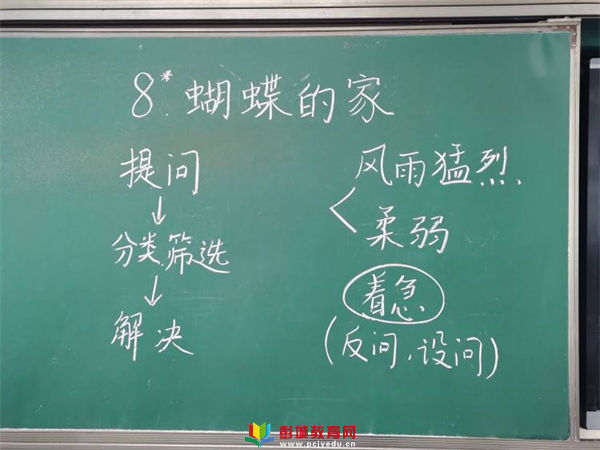 8*.蝴蝶的家
提问
↓
分类,筛选
↓
解决
风雨猛烈
<
柔弱
着急
(反问、设问)
彭城教育网
www.pcjyedu.cn